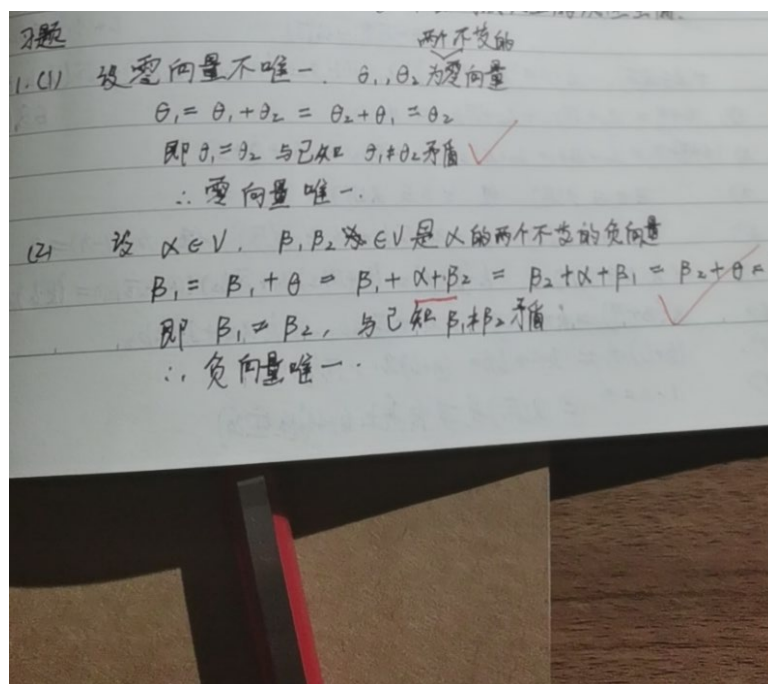 习题
两个不变的
1.(1) 设零向量不唯一. θ₁,θ₂为零向量
θ₁ = θ₁+θ₂ = θ₂+θ₁ = θ₂
即θ₁=θ₂ 与已知 θ₁≠θ₂矛盾
∴ 零向量唯一.
(2) 设 α∈V. β₁β₂ ∈V是α的两个不变的负向量
β₁ = β₁+θ = β₁+α+β₂ = β₂+α+β₁ = β₂+θ =
即 β₁=β₂, 与已知β₁≠β₂矛盾
∴ 负向量唯一.